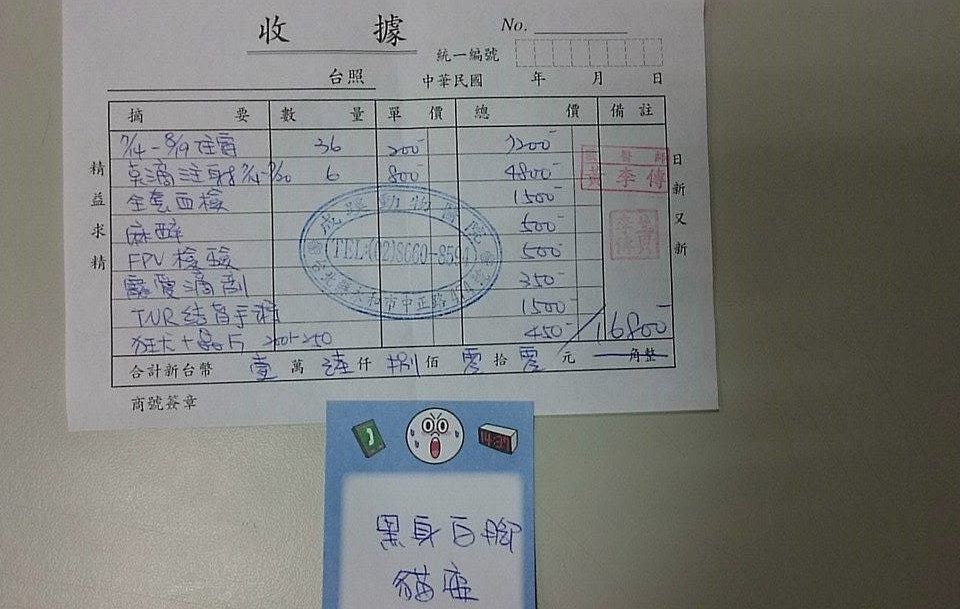 收 據
No.
統一編號
台照
中華民國 年 月 日
摘 要 數 量 單 價 總 價 備 註
7/14-8/19住宿 36 200- 7200-
6 800- 4800-
全套血檢 1500-
麻醉 500-
FPV檢驗 500-
寵愛滴劑 350-
TNR結育手術 1500-
狂犬+晶片 200+250 450- /16800-
合計新台幣 壹萬 陸仟 捌佰 零拾 零元 角整
商號簽章
精益求精
日新又新
獸醫師
黃李傳
動物醫院
TEL:(02)8660-8591
永和市中正路
14:37
黑身白腳
貓